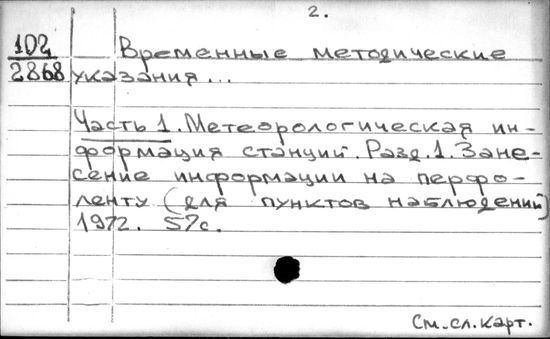 2.
102
2868
Временные методические
указания...
Часть 1. Метеорологическая ин-
формация станций. Разд. 1. Зане-
сение информации на перфо-
ленту (для пунктов наблюдений)
1972. 57с.
См. сл. карт.